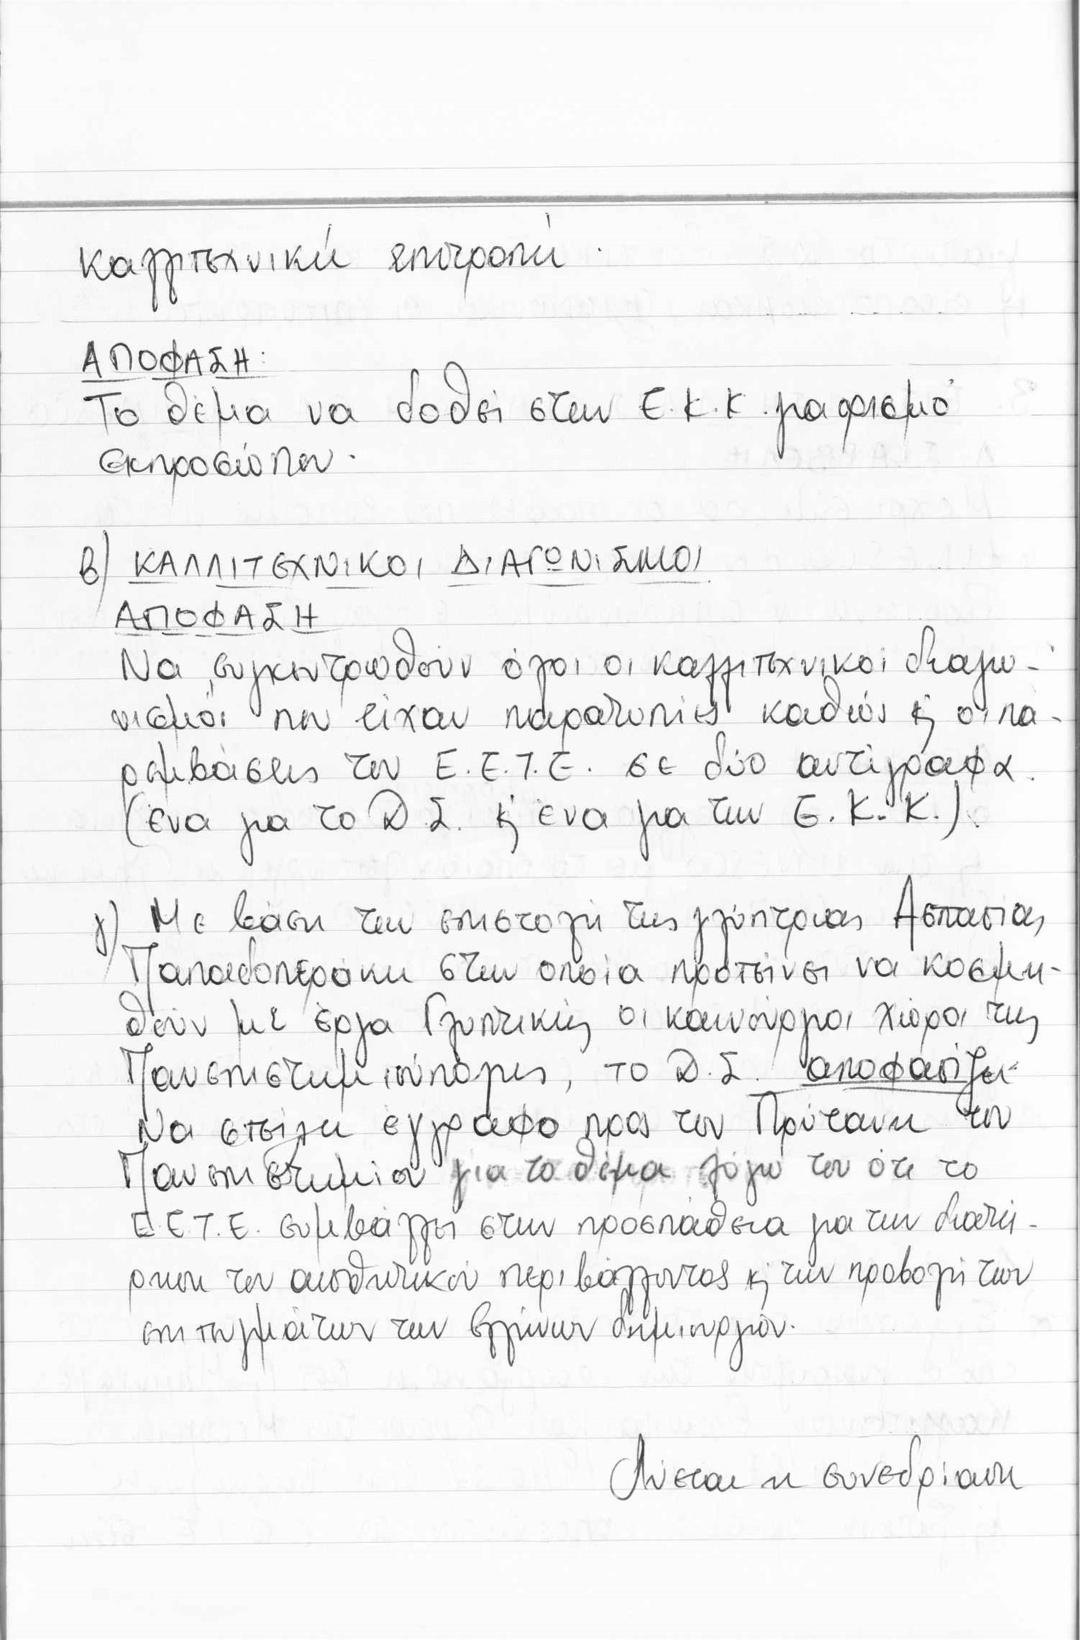 καλλιτεχνική επιτροπή.
ΑΠΟΦΑΣΗ:
Το θέμα να δοθεί στην Ε.Κ.Κ. για ορισμό
εκπροσώπου.
β) ΚΑΛΛΙΤΕΧΝΙΚΟΙ ΔΙΑΓΩΝΙΣΜΟΙ
ΑΠΟΦΑΣΗ
Να συγκεντρωθούν όλοι οι καλλιτεχνικοί διαγω-
νισμοί που είχαν παρατυπίες καθώς κ οι πα-
ρεμβάσεις του Ε.Ε.Τ.Ε. σε δύο αντίγραφα.
(ένα για το Δ.Σ. κ ένα για την Ε.Κ.Κ.).
γ) Με βάση την επιστολή της γλύπτριας Ασπασίας
Παπαδοπεράκη στην οποία προτείνει να κοσμη-
θούν με έργα Γλυπτικής οι καινούργιοι χώροι της
Πανεπιστημιούπολης, το Δ.Σ. αποφασίζει
Να στείλει έγγραφο προς τον Πρύτανη του
Πανεπιστημίου για το θέμα λόγω του ότι το
Ε.Ε.Τ.Ε. συμβάλλει στην προσπάθεια για την διατή-
ρηση του αισθητικού περιβάλλοντος κ την προβολή των
επιτευγμάτων των ελλήνων δημιουργών.
Λύεται η συνεδρίαση